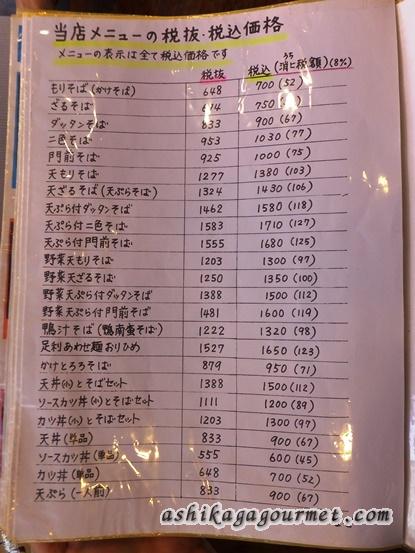 当店メニューの税抜・税込価格
メニューの表示は全て税込価格です
税抜 税込 (うち消ヒ税額)(8%)
もりそば (かけそば) 648 700 (52)
ざるそば 750
ダッタンそば 833 900 (67)
二色そば 953 1030 (77)
門前そば 925 1000 (75)
天もりそば 1277 1380 (103)
天ざるそば (天ぷらそば) 1324 1430 (106)
天ぷら付ダッタンそば 1462 1580 (118)
天ぷら付二色そば 1583 1710 (127)
天ぷら付門前そば 1555 1680 (125)
野菜天もりそば 1203 1300 (97)
野菜天ざるそば 1250 1350 (100)
野菜天ぷら付ダッタンそば 1388 1500 (112)
野菜天ぷら付門前そば 1481 1600 (119)
鴨汁そば (鴨南蛮そば) 1222 1320 (98)
足利あわせ麺おりひめ 1527 1650 (123)
かけとろろそば 879 950 (71)
天丼(小)とそばセット 1388 1500 (112)
ソースカツ丼(小)とそば・セット 1111 1200 (89)
カツ丼(小)とそば・セット 1203 1300 (97)
天丼 (単品) 833 900 (67)
ソースカツ丼 (単品) 555 600 (45)
カツ丼 (単品) 648 700 (52)
天ぷら (一人前) 833 900 (67)
ashikagagourmet.com